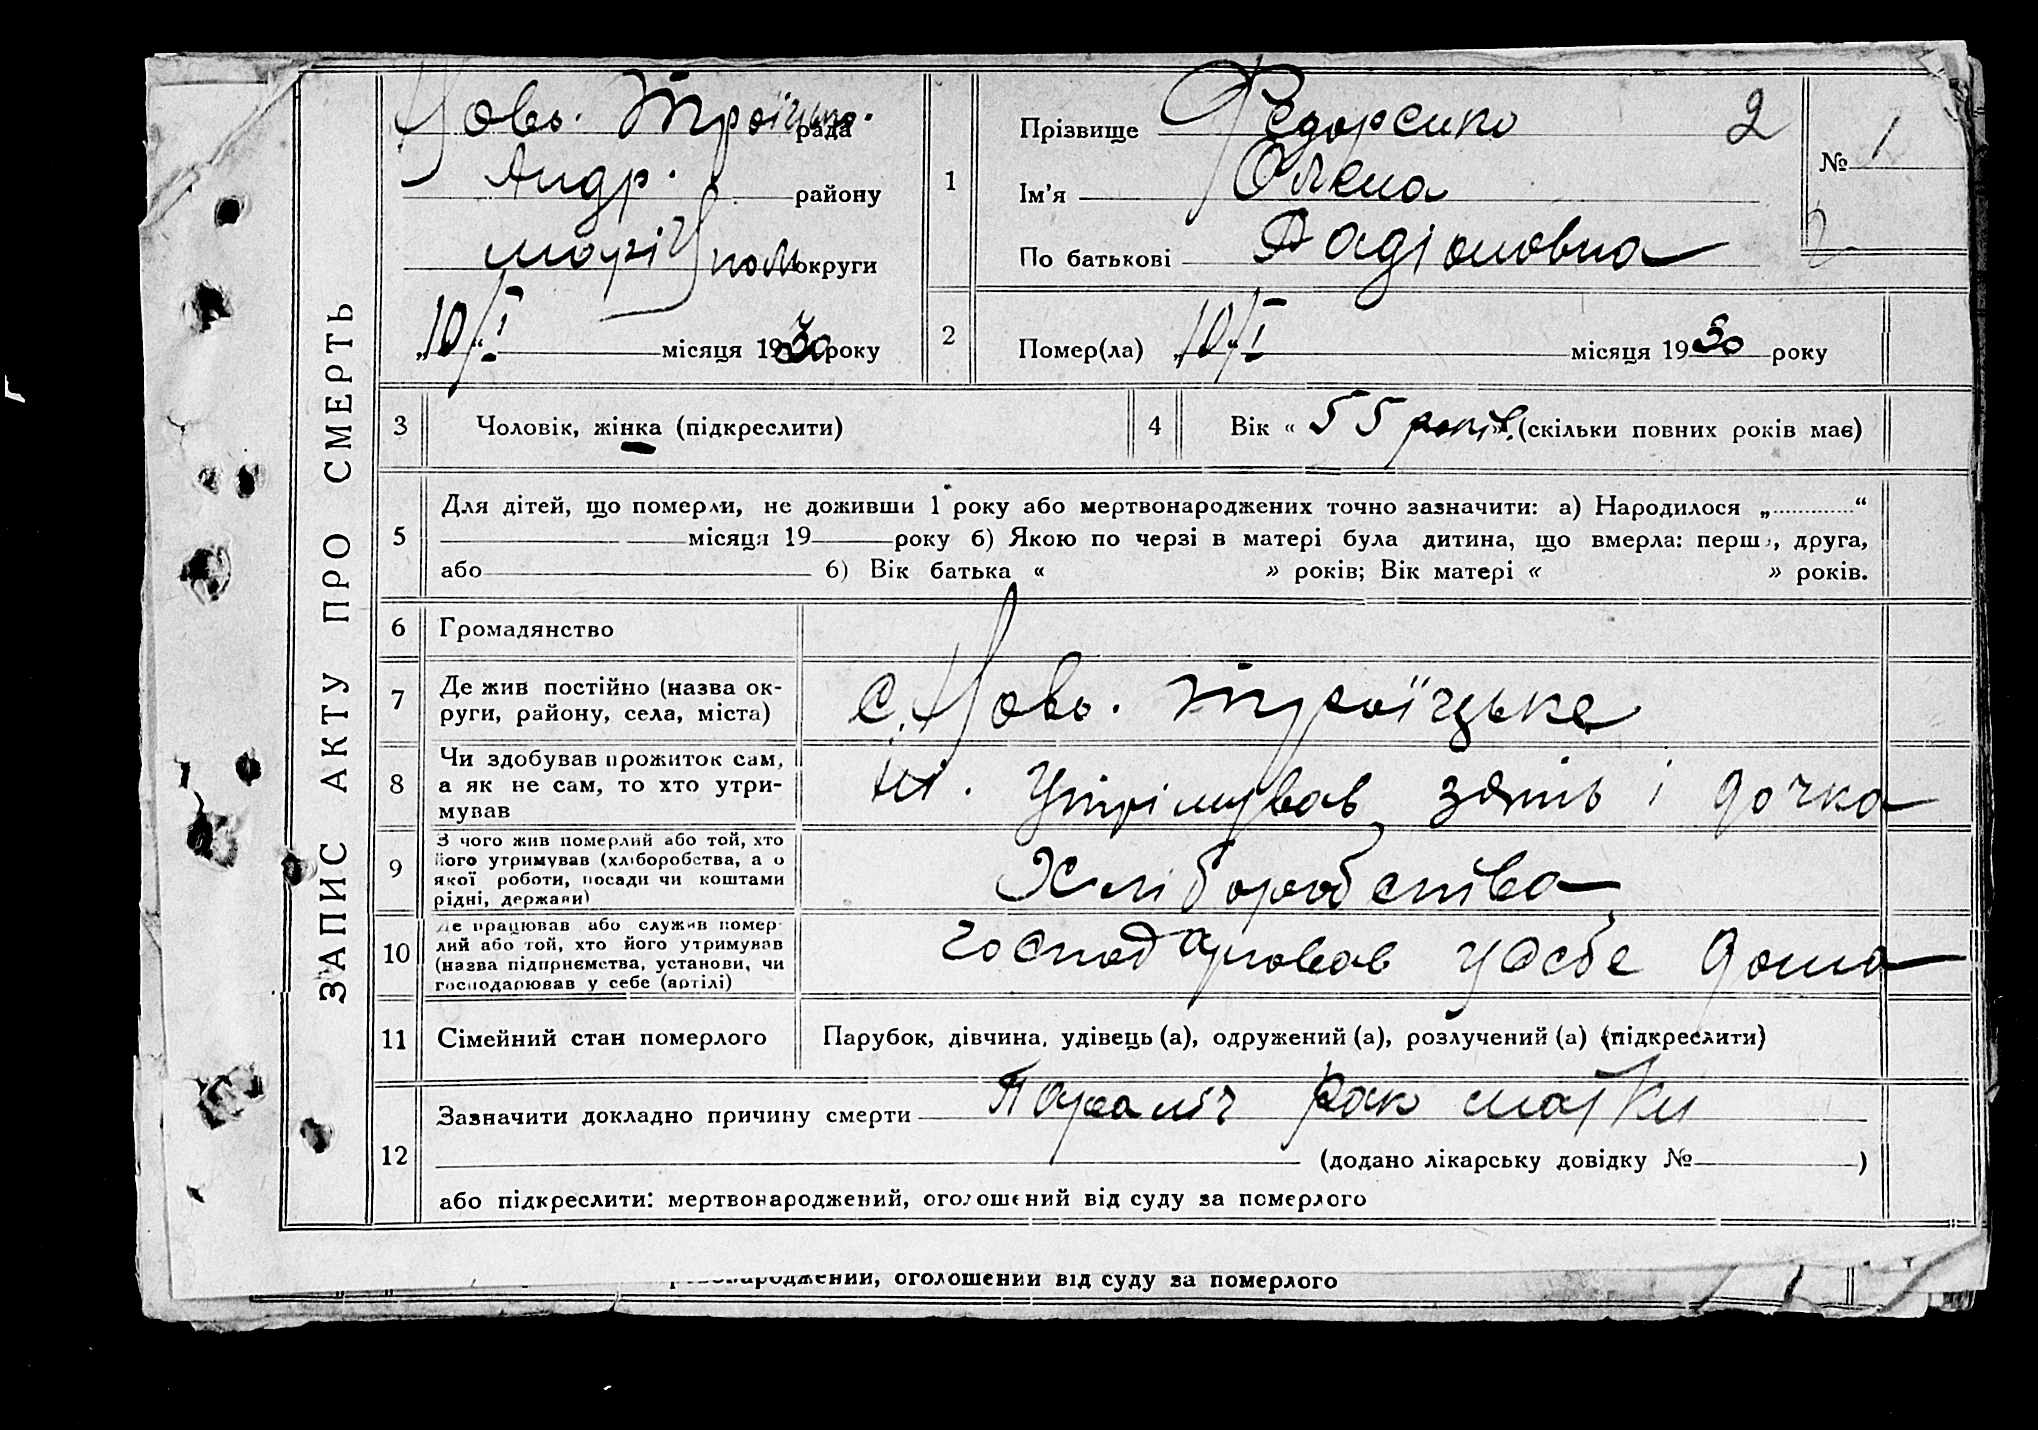 ЗАПИС АКТУ ПРО СМЕРТЬ
Новь. Троїцька. рада
Андр. району
маріупол округи
„10/I“ місяця 1930 року
1
Прізвище Федоренко 2
Ім'я Олена
По батькові Радіоновна
№ 1
2
2
Помер(ла) „10/I“ місяця 1930 року
3 Чоловік, жінка (підкреслити)
4 Вік « 55 років » (скільки повних років має)
5
Для дітей, що померли, не доживши 1 року або мертвонароджених точно зазначити: а) Народилося „............“
місяця 19 року б) Якою по черзі в матері була дитина, що вмерла: перша, друга,
або б) Вік батька « » років; Вік матері « » років.
6 Громадянство
7
Де жив постійно (назва ок-
руги, району, села, міста)
с. Новь. Троїцьке
8
Чи здобував прожиток сам,
а як не сам, то хто утри-
мував
ні. Утрімував зять і дочка
9
З чого жив померлий або той, хто
його утримував (хліборобства, а о
якої роботи, посади чи коштами
рідні, держави)
Хліборобства
10
Де працював або служив помер-
лий або той, хто його утримував
(назва підприємства, установи, чи
господарював у себе (артілі)
господарював усебе дома
11 Сімейний стан померлого
Парубок, дівчина, удівець (а), одружений (а), розлучений (а) (підкреслити)
12
Зазначити докладно причину смерти Параліч рак матки
(додано лікарську довідку № )
або підкреслити: мертвонароджений, оголошений від суду за померлого
оголошений від суду за померлого